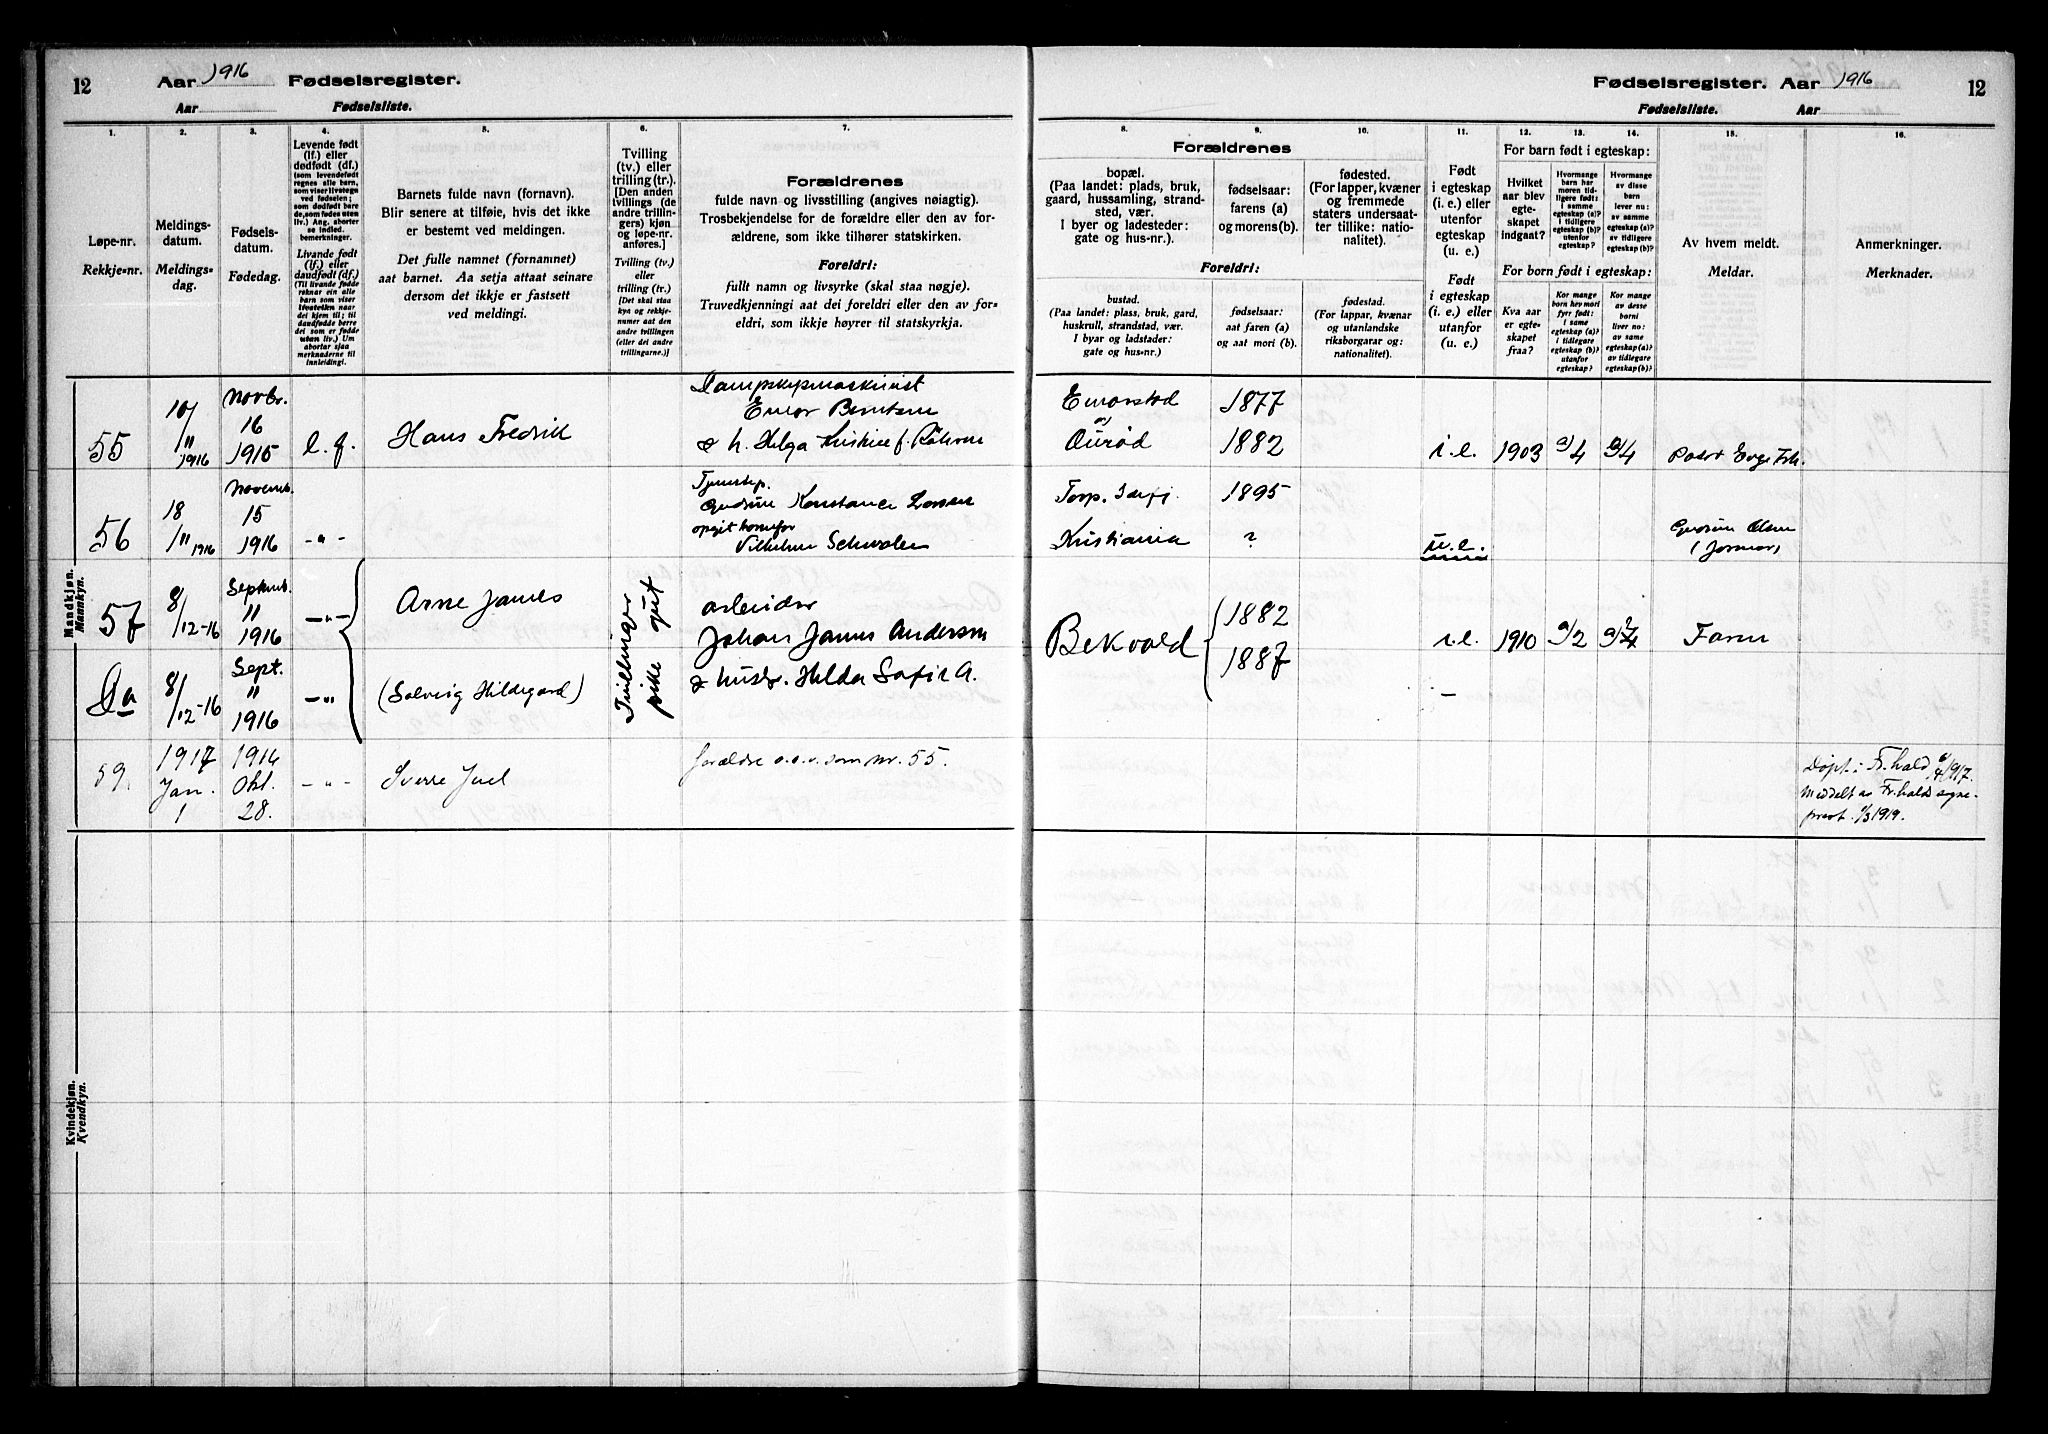 12 Aar 1916 Fødselsregister.
Aar Fødselsliste.
1. 2. 3. 4. 5. 6. 7.
Løpe-nr.
Rekkje-nr.
Meldings-
datum.
Meldings-
dag.
Fødsels-
datum.
Fødedag.
Levende født
(lf.) eller
dødfødt (df.)
(som levendefødt
regnes alle barn,
som viser livstegn
ved fødselen;
som dødfødt bare
de, som fødes uten
liv.) Ang. aborter
se indled.
bemerkninger.
Livande født
(lf.) eller
daudfødt (df.)
(Til livande fødde
reknar ein alle
born som viser
livsteikn naar
dei kjem til; til
daudfødde berre
dei som er fødde
utan liv.) Um
abortar sjaa
merknaderne til
innleidingi.
Barnets fulde navn (fornavn).
Blir senere at tilføie, hvis det ikke
er bestemt ved meldingen.
Det fulle namnet (fornamnet)
aat barnet. Aa setja attaat seinare
dersom det ikkje er fastsett
ved meldingi.
Tvilling
(tv.) eller
trilling (tr.).
[Den anden
tvillings (de
andre trillin-
gers) kjøn
og løpe-nr.
anføres.]
Tvilling (tv.)
eller
trilling (tr.)
[Det skal staa
kyn og rekkje-
numer aat den
andre tvillingen
(eller dei andre
trillingarne.)]
Forældrenes
fulde navn og livsstilling (angives nøiagtig).
Trosbekjendelse for de forældre eller den av for-
ældrene, som ikke tilhører statskirken.
Foreldri:
fullt namn og livsyrke (skal staa nøgje).
Truvedkjenningi aat dei foreldri eller den av for-
eldri, som ikkje høyrer til statskyrkja.
Mandkjøn.
Mannkyn.
55
10/11 1916
Novbr.
16
1915
l. f.
Hans Fredrik
Einar Berntsen
& h. Helga Kristine f.
56
18/11 1916
Novemb.
15
1916
-"-
Konstance Larsen
57
8/12-16
Septemb.
11
1916
-"-
Arne James
Tvillinger
pike
arbeider
Johan James Andersen
8/12-16
Sept.
11
1916
-"-
(Solveig Hildegard)
& hustr. Hilda Sofie A.
59.
1917
Jan.
1
1914
Okt.
28.
- " -
Sverre Juel
forældre o.s.v. som nr. 55.
Kvindekjøn.
Kvendkyn.
Fødselsregister. Aar 1916 12
Fødselsliste. Aar
8. 9. 10. 11. 12. 13. 14. 15. 16.
Forældrenes
bopæl.
(Paa landet: plads, bruk,
gaard, hussamling, strand-
sted, vær.
I byer og ladesteder:
gate og hus-nr.).
fødselsaar:
farens (a)
og morens(b).
fødested.
(For lapper, kvæner
og fremmede
staters undersaat-
ter tillike: natio-
nalitet).
Foreldri:
bustad.
(Paa landet: plass, bruk, gard,
huskrull, strandstad, vær.
I byar og ladstader:
gate og hus-nr.)
fødselsaar:
aat faren (a)
og aat mori (b).
fødestad.
(For lappar, kvænar
og utanlandske
riksborgarar og:
nationalitet).
Født
i egteskap
(i. e.) eller
utenfor
egteskap
(u. e.)
Født
i egteskap
(i. e.) eller
utanfor
egteskap
(u. e.)
For barn født i egteskap:
Hvilket
aar blev
egte-
skapet
indgaat?
Hvormange
barn har
moren tid-
ligere født:
i samme
egteskap (a)?
i tidligere
egteskap (b)?
utenfor
egteskap?
Hvormange
av disse
barn
lever nu:
av samme
egteskap (a)?
av tidligere
egteskap (b)?
For born født i egteskap:
Kva aar
er egte-
skapet
fraa?
Kor mange
born hev mori
fyrr født:
i same
egteskap (a)?
i tidlegare
egteskap (b)?
utanfor
egteskap?
Kor mange
av desse
borni
liver no:
av same
egteskap (a)?
av tidlegare
egteskap (b)?
Av hvem meldt.
Meldar.
Anmerkninger.
Merknader.
1877
1882
i. e.
1903
a/4
a/4
1895
Kristiania
?
u. e.
Bekvold
1882
1887
i. e.
1910
a/2
Faren
-
Døpt i Fr.hald
Meddelt av Fr.halds sogne-
prest 1/3 1919.